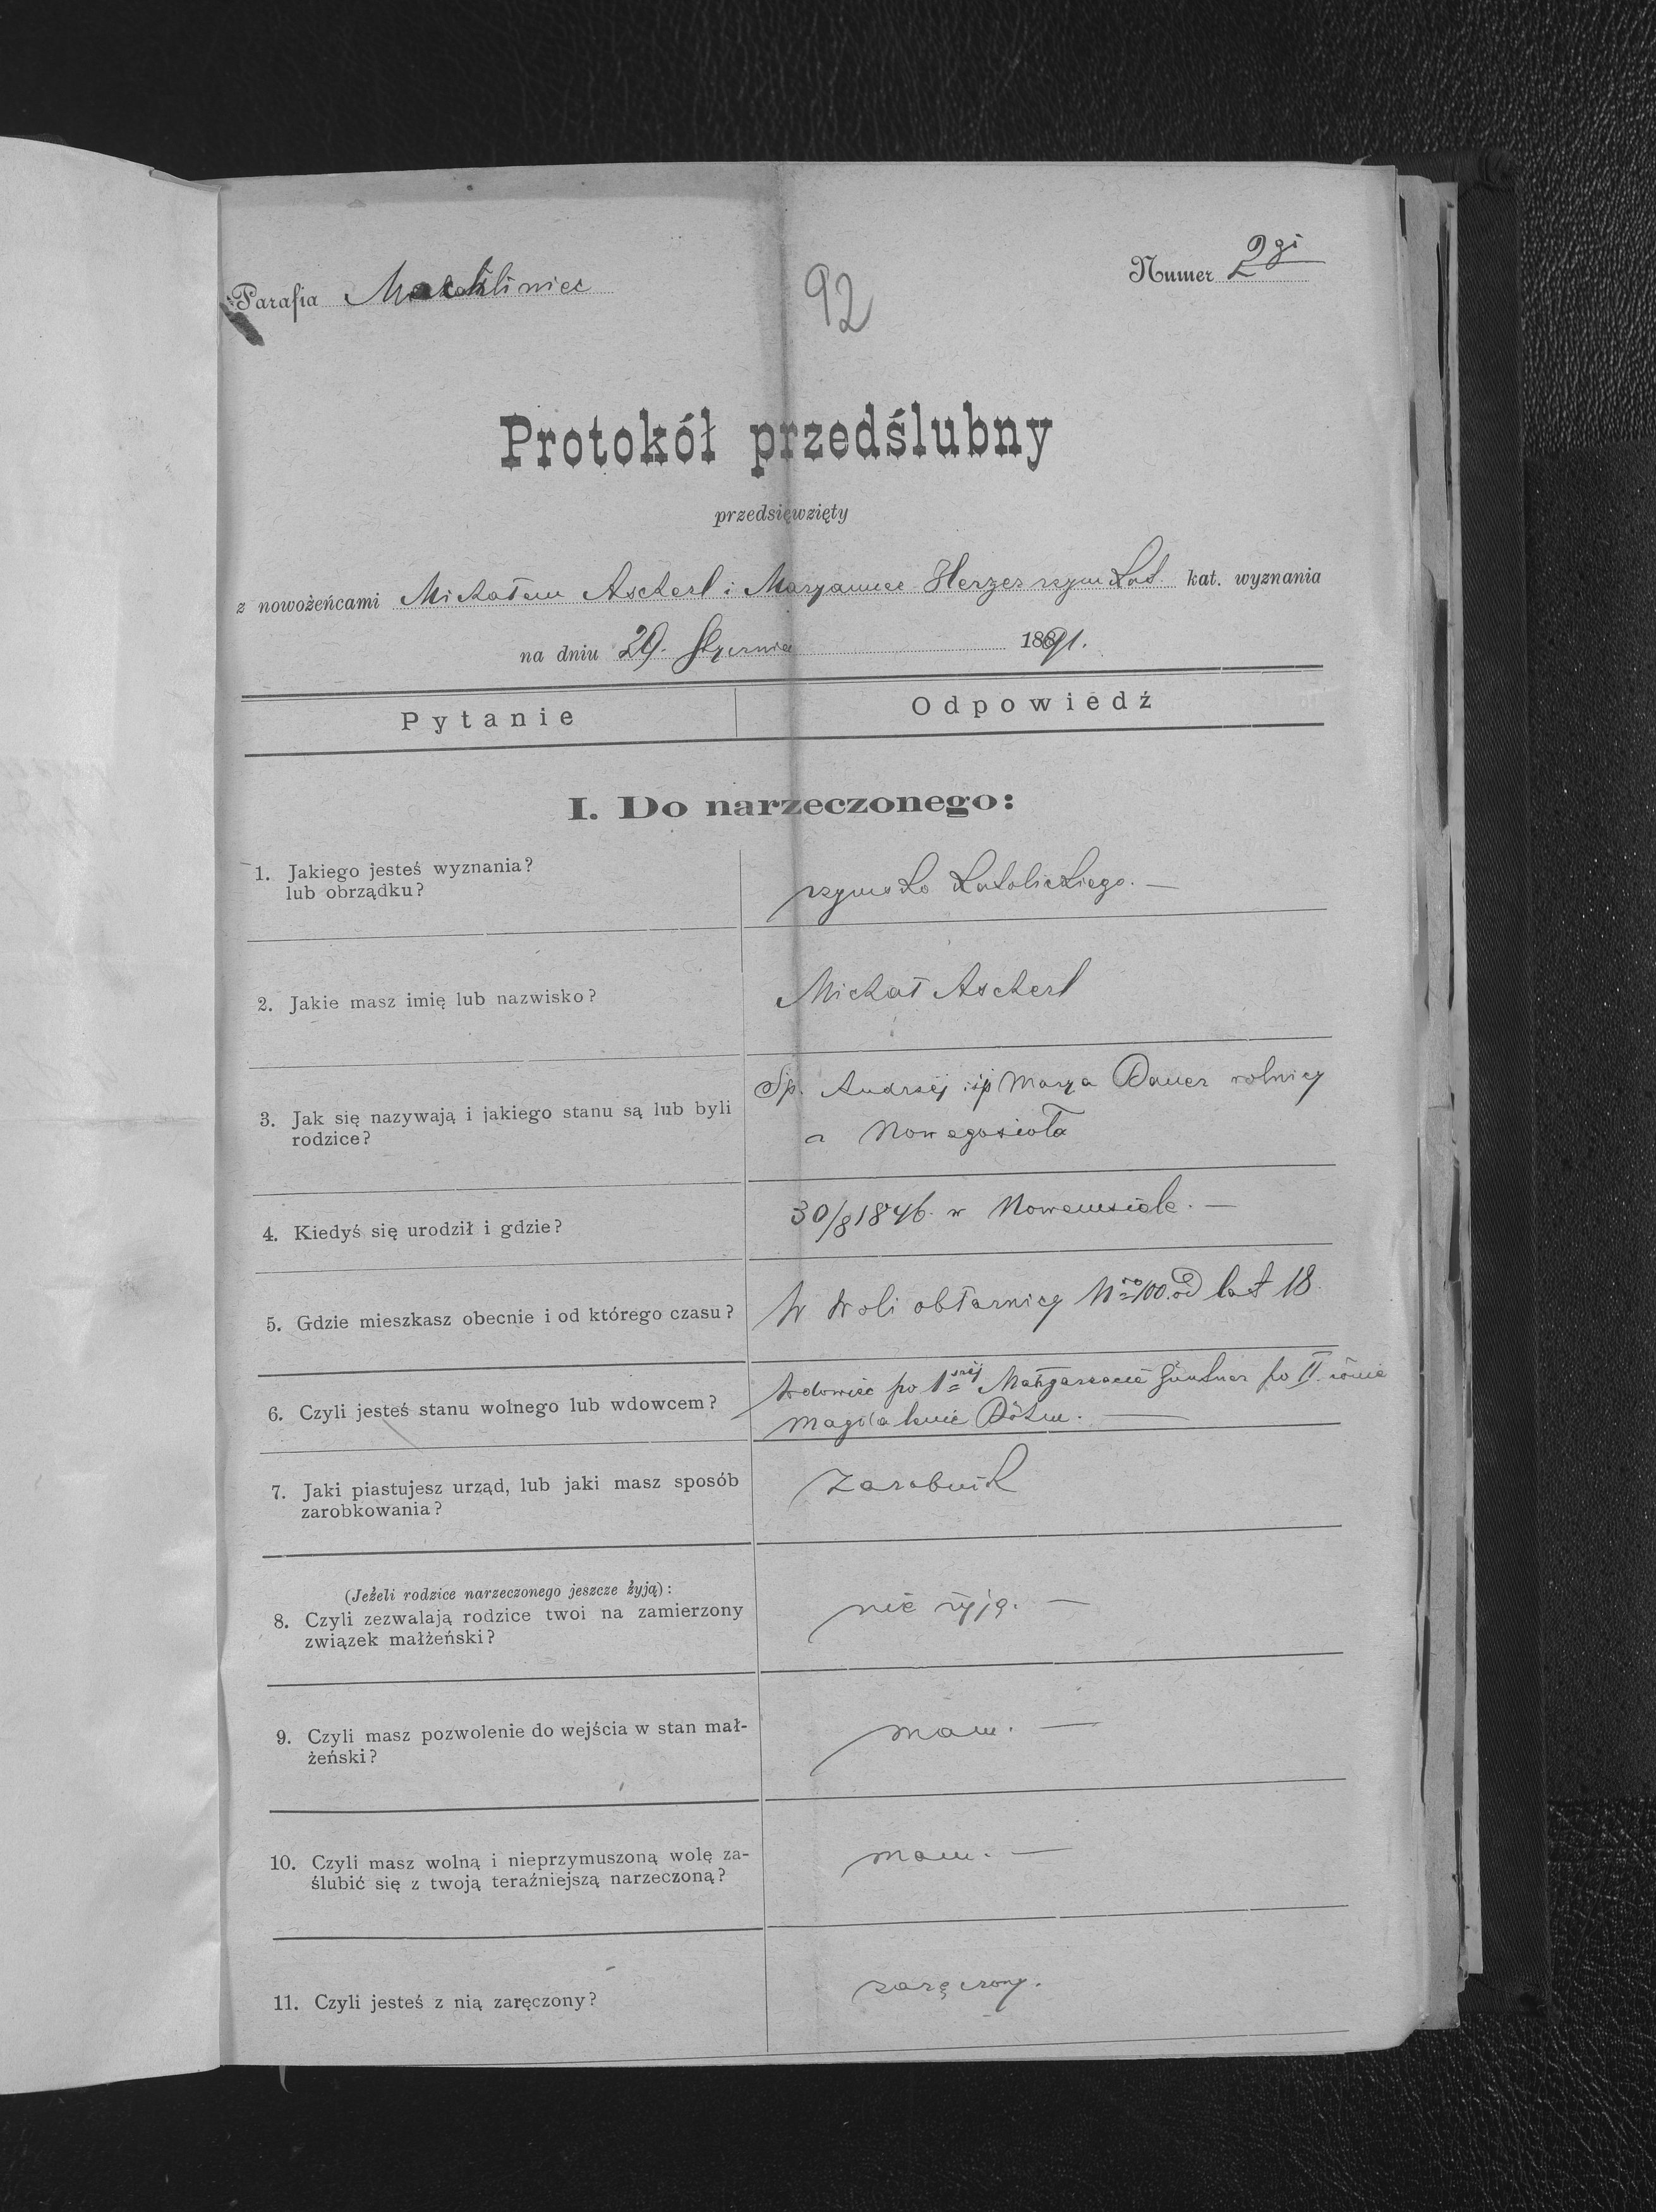 Parafia Machliniec
92
Numer 2gi
Protokół przedślubny
przedsięwzięty
z nowożeńcami Michałem Ascherl i Maryannee Herzer rzym kat. kat. wyznania
na dniu 29. Stycznia 1891.
Pytanie
Odpowiedź
I. Do narzeczonego:
1. Jakiego jesteś wyznania?
lub obrządku?
rzymsko katolickiego. —
2. Jakie masz imię lub nazwisko?
Michał Ascherl
3. Jak się nazywają i jakiego stanu są lub byli
rodzice?
Śp. Andrzéj i śp Marya Bauer rolnicy
z Nowegosioła
4. Kiedyś się urodził i gdzie?
30/8 1846. w Nowemsiole. —
5. Gdzie mieszkasz obecnie i od którego czasu?
W Woli obłaznicy Nro 100. od lat 18
6. Czyli jesteś stanu wolnego lub wdowcem?
Wdowiec po 1széj Małgarzacie Guntner po II. żonie
Magdalenie Böhm. —
7. Jaki piastujesz urząd, lub jaki masz sposób
zarobkowania?
Zarobnik
(Jeżeli rodzice narzeczonego jeszcze żyją):
8. Czyli zezwalają rodzice twoi na zamierzony
związek małżeński?
nie żyją. —
9. Czyli masz pozwolenie do wejścia w stan mał-
żeński?
mam. —
10. Czyli masz wolną i nieprzymuszoną wolę za-
ślubić się z twoją teraźniejszą narzeczoną?
mam. —
11. Czyli jesteś z nią zaręczony?
zaręczony.